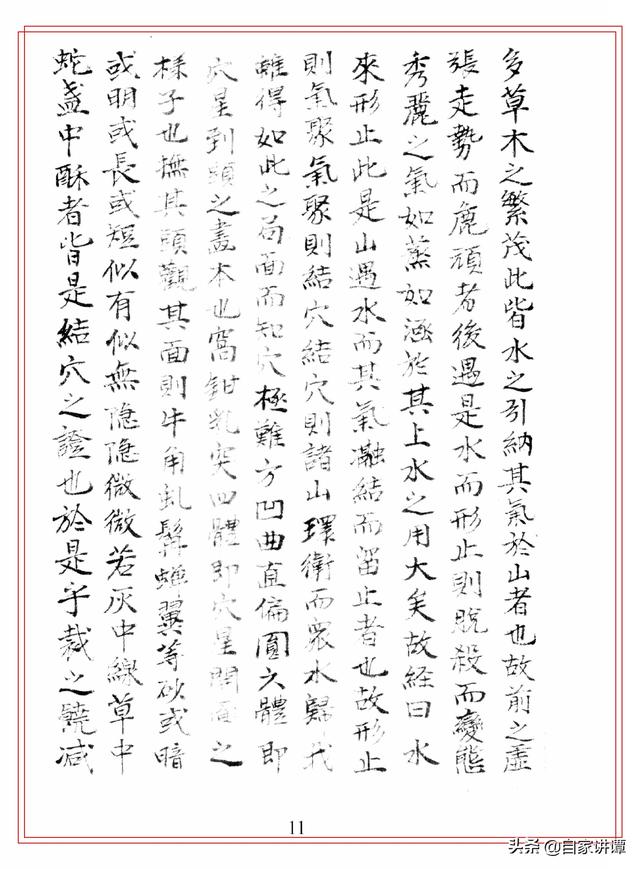 多草木之繁茂此皆水之引納其氣於山者也故前之虛
張走勢而麄頑者後遇是水而形止則脫殺而變態
秀麗之氣如蒸如涵於其上水之用大矣故経曰水
來形止此是山遇水而其氣瀜結而留止者也故形止
則氣聚氣聚則結穴結穴則諸山環衛而衆水歸我
雖得如此之局面而知穴極難方凹曲直偏圓六體即
穴星到頭之畫本也窩鉗乳突四體即穴星開面之
様子也撫其頭觀其面則牛角虬髯蟬翼等砂或暗
或明或長或短似有似無隐隐微微若灰中線草中
蛇盞中酥者皆是結穴之證也於是乎裁之饒减
11
头条 @自家讲谭